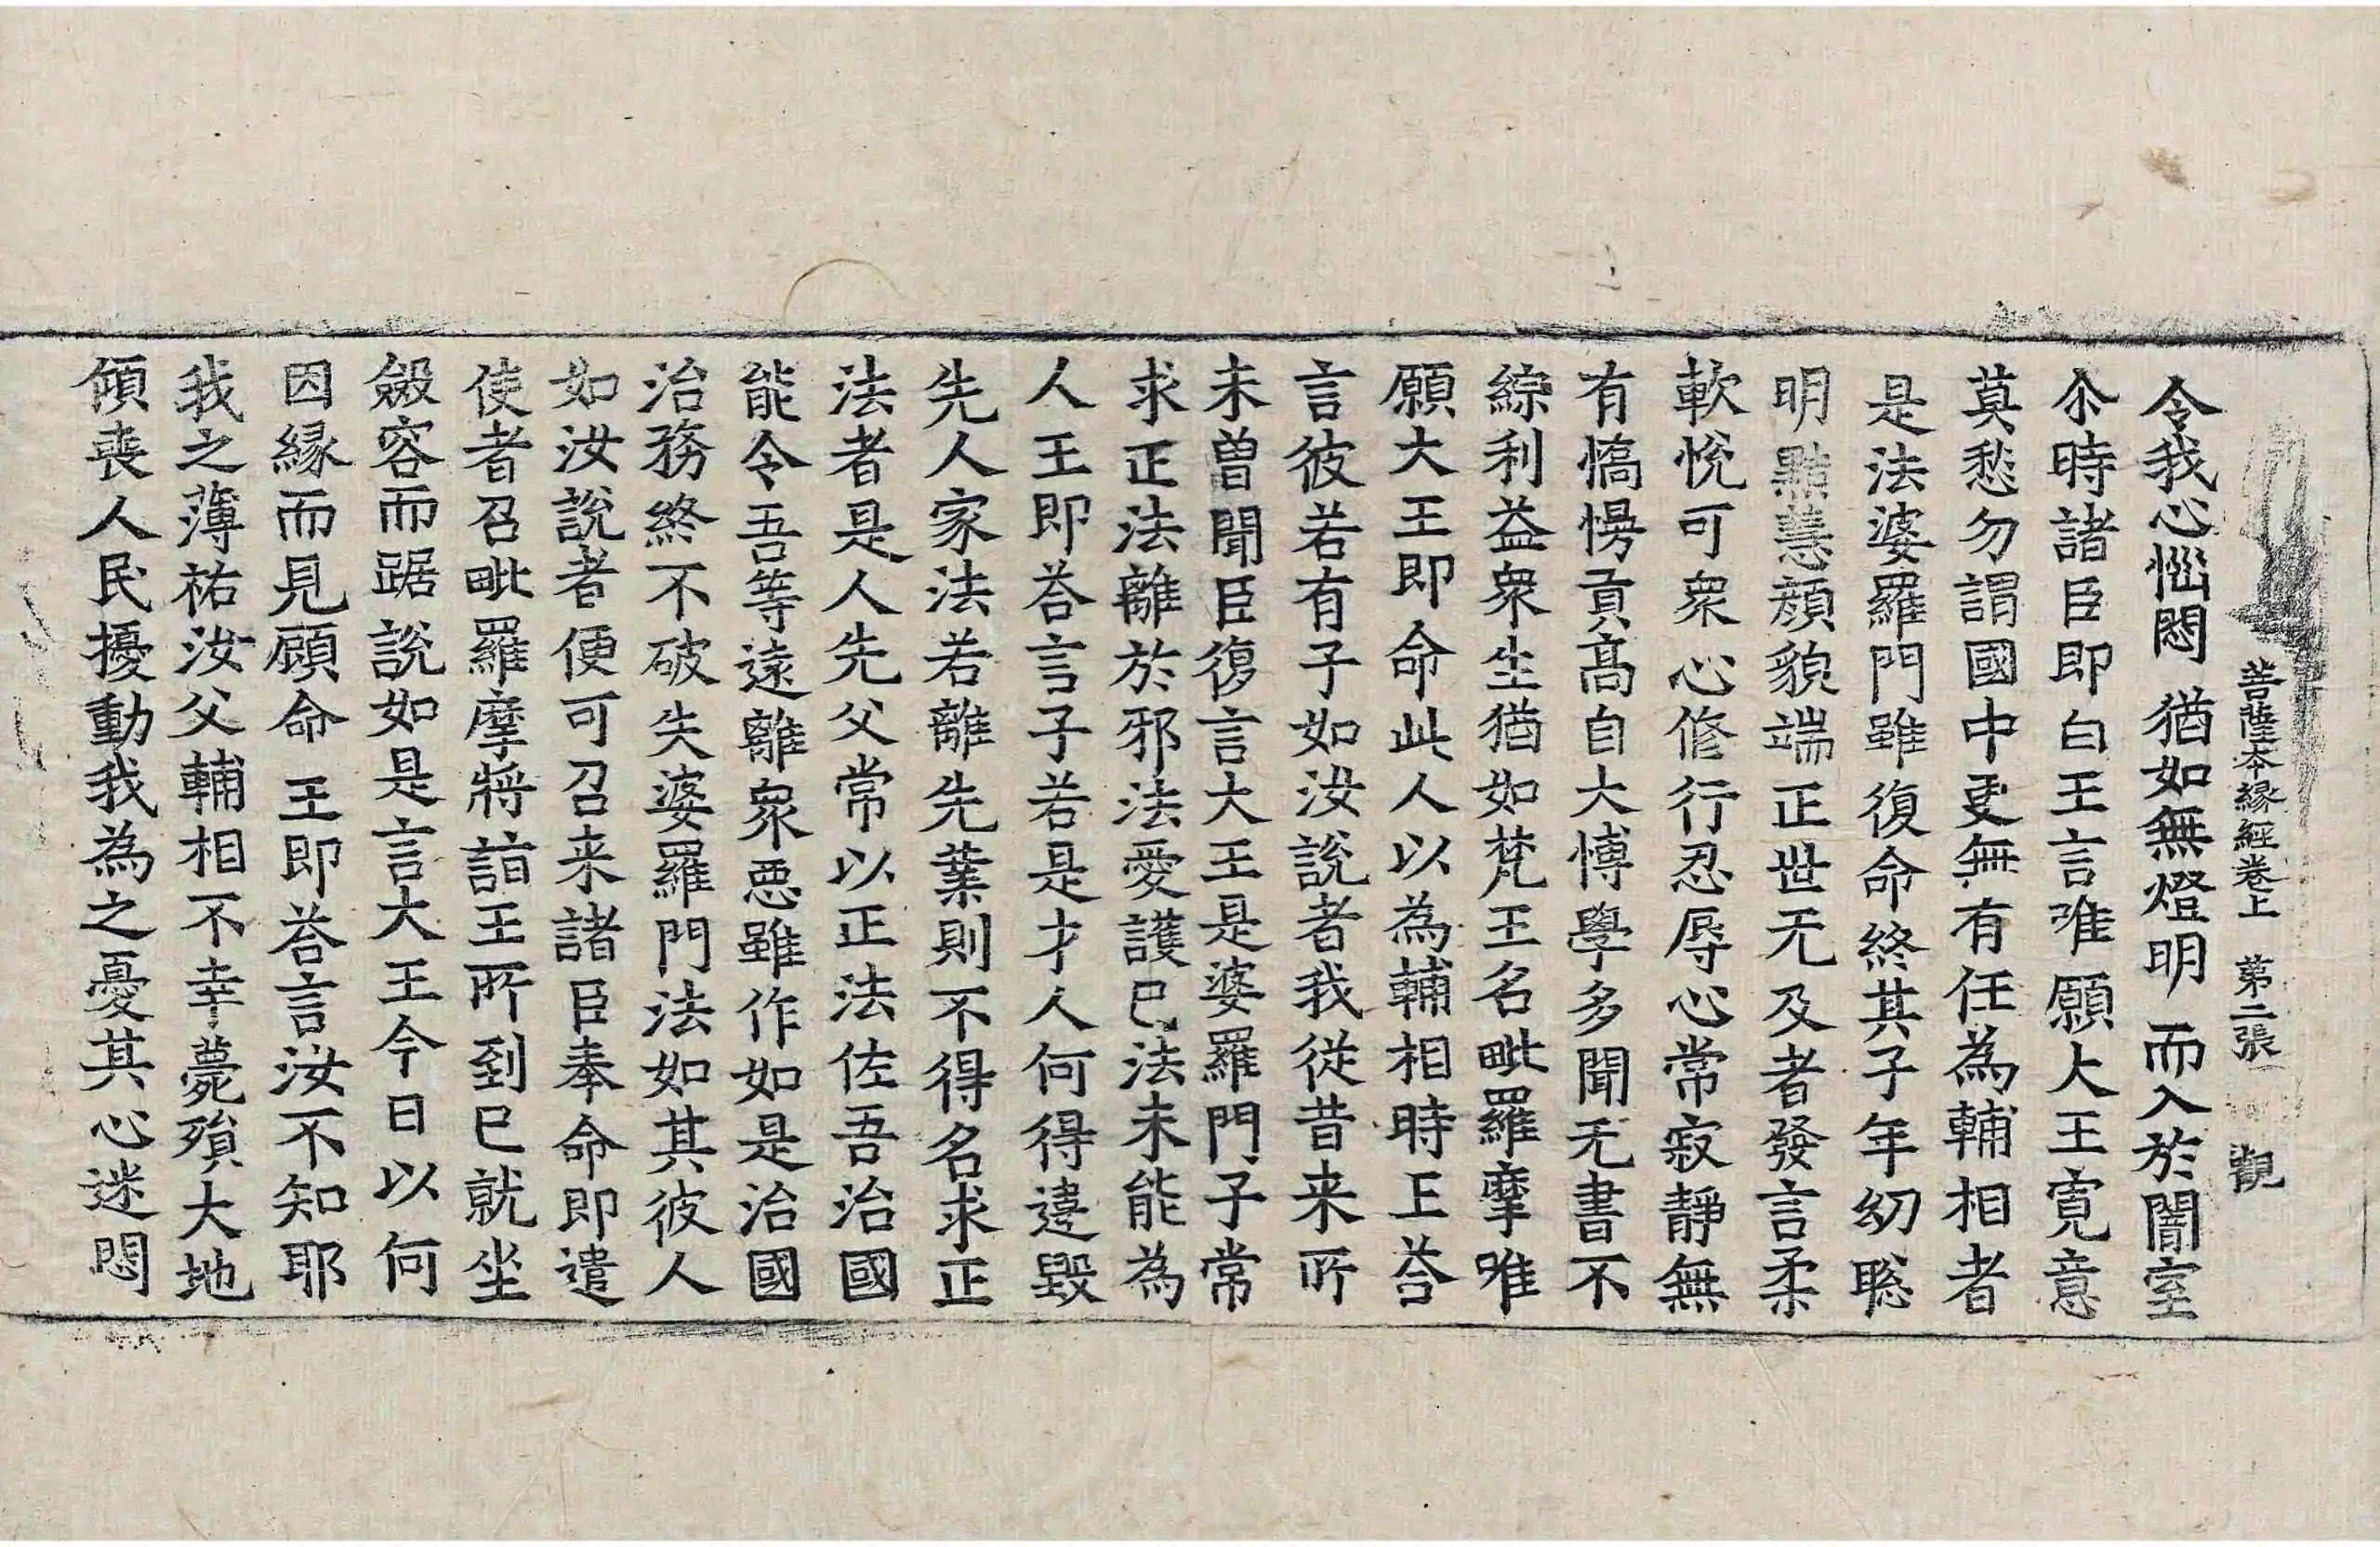 菩薩本緣經卷上 第二張 觀
令我心惱悶猶如無燈明而入於闇室
尒時諸臣即白王言唯願大王寬意
莫愁勿謂國中更無有任為輔相者
是法婆羅門雖復命終其子年幼聡
明黠慧顔貌端正世无及者發言柔
軟悅可衆心修行忍辱心常寂靜無
有憍慢貢髙自大博學多聞无書不
綜利益衆生猶如梵王名毗羅摩唯
願大王即命此人以為輔相時王荅
言彼若有子如汝說者我從昔来所
未曽聞臣復言大王是婆羅門子常
求正法離於邪法愛護己法未能為
人王即荅言子若是才人何得違毀
先人家法若離先業則不得名求正
法者是人先父常以正法佐吾治國
能令吾等遠離衆惡雖作如是治國
治務終不破失婆羅門法如其彼人
如汝說者便可召来諸臣奉命即遣
使者召毗羅摩將詣王所到已就坐
斂容而踞說如是言大王今日以何
因縁而見顧命王即荅言汝不知耶
我之薄祐汝父輔相不幸薨殞大地
傾喪人民擾動我為之憂其心迷悶